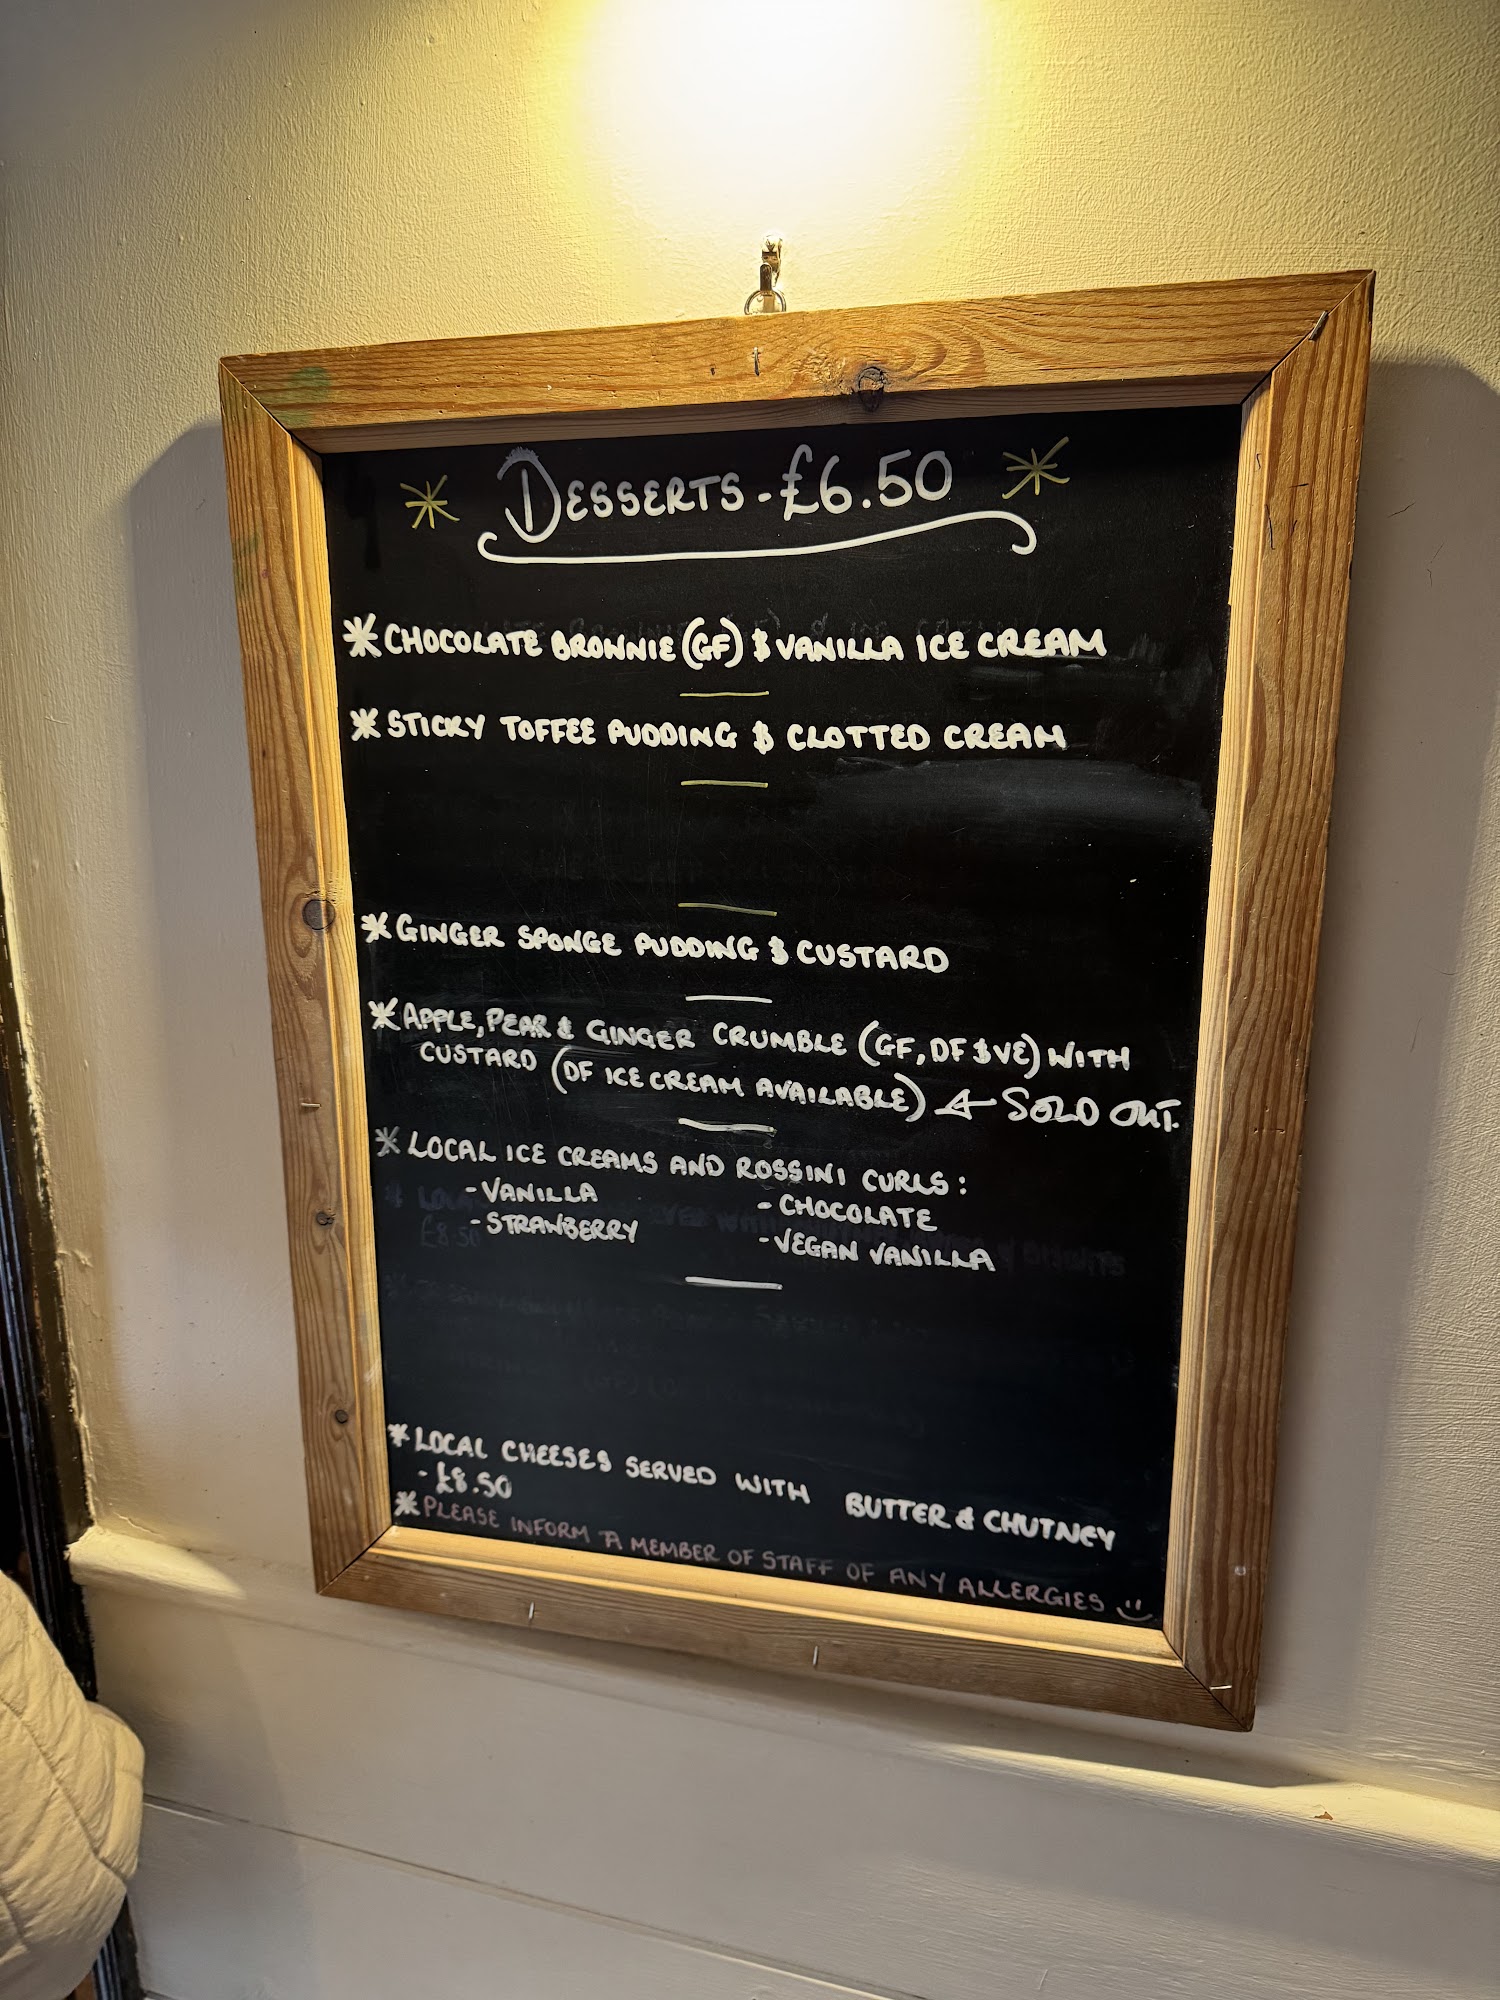 DESSERTS - £6.50
CHOCOLATE BROWNIE (GF) & VANILLA ICE CREAM
STICKY TOFFEE PUDDING & CLOTTED CREAM
GINGER SPONGE PUDDING & CUSTARD
APPLE, PEAR & GINGER CRUMBLE (GF, DF & VE) WITH
CUSTARD (DF ICE CREAM AVAILABLE) ← SOLD OUT.
LOCAL ICE CREAMS AND ROSSINI CURLS:
- VANILLA - CHOCOLATE
- STRAWBERRY - VEGAN VANILLA
LOCAL CHEESES SERVED WITH BUTTER & CHUTNEY
- £8.50
PLEASE INFORM A MEMBER OF STAFF OF ANY ALLERGIES